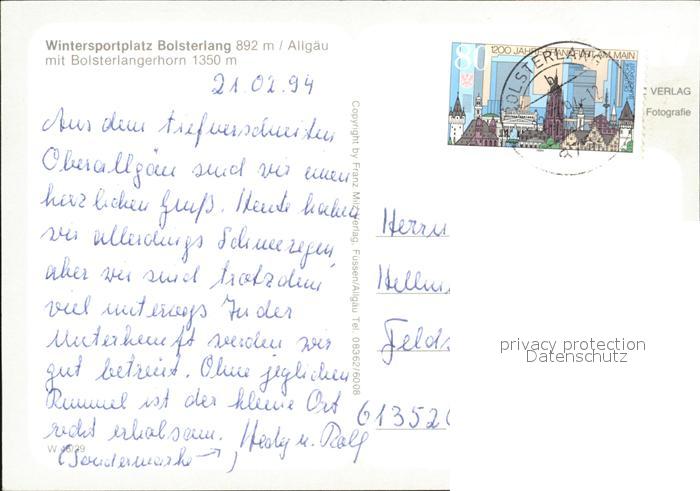 Wintersportplatz Bolsterlang 892 m / Allgäu
mit Bolsterlangerhorn 1350 m
21.02.94
Aus dem tiefverschneiten
Oberallgäu sind wir einen
herzlichen Gruß. Heute haben
wir allerdings Schneeregen,
aber wir sind trotzdem
viel unterwegs. In der
Unterkunft werden wir
gut betreut. Ohne jeglichen
Rummel ist der kleine Ort
recht erholsam. Hedy u. Rolf
(Sondermarke →)
W 46/29
Copyright by Franz Milz Verlag, Füssen/Allgäu Tel. 08362/6008
80
1200 JAHRE FRANKFURT AM MAIN
DEUTSCHE BUNDESPOST
BOLSTERLANG
VERLAG
Fotografie
Herrn
Hellm
Felds
61352
privacy protection
Datenschutz